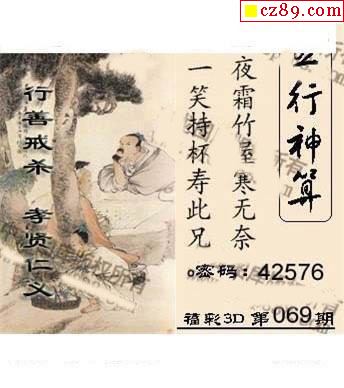 cz89.com
五行神算
夜霜竹屋寒无奈
一笑持杯寿此兄
行善戒杀 孝贤仁义
密码:42576
福彩3D 第069期